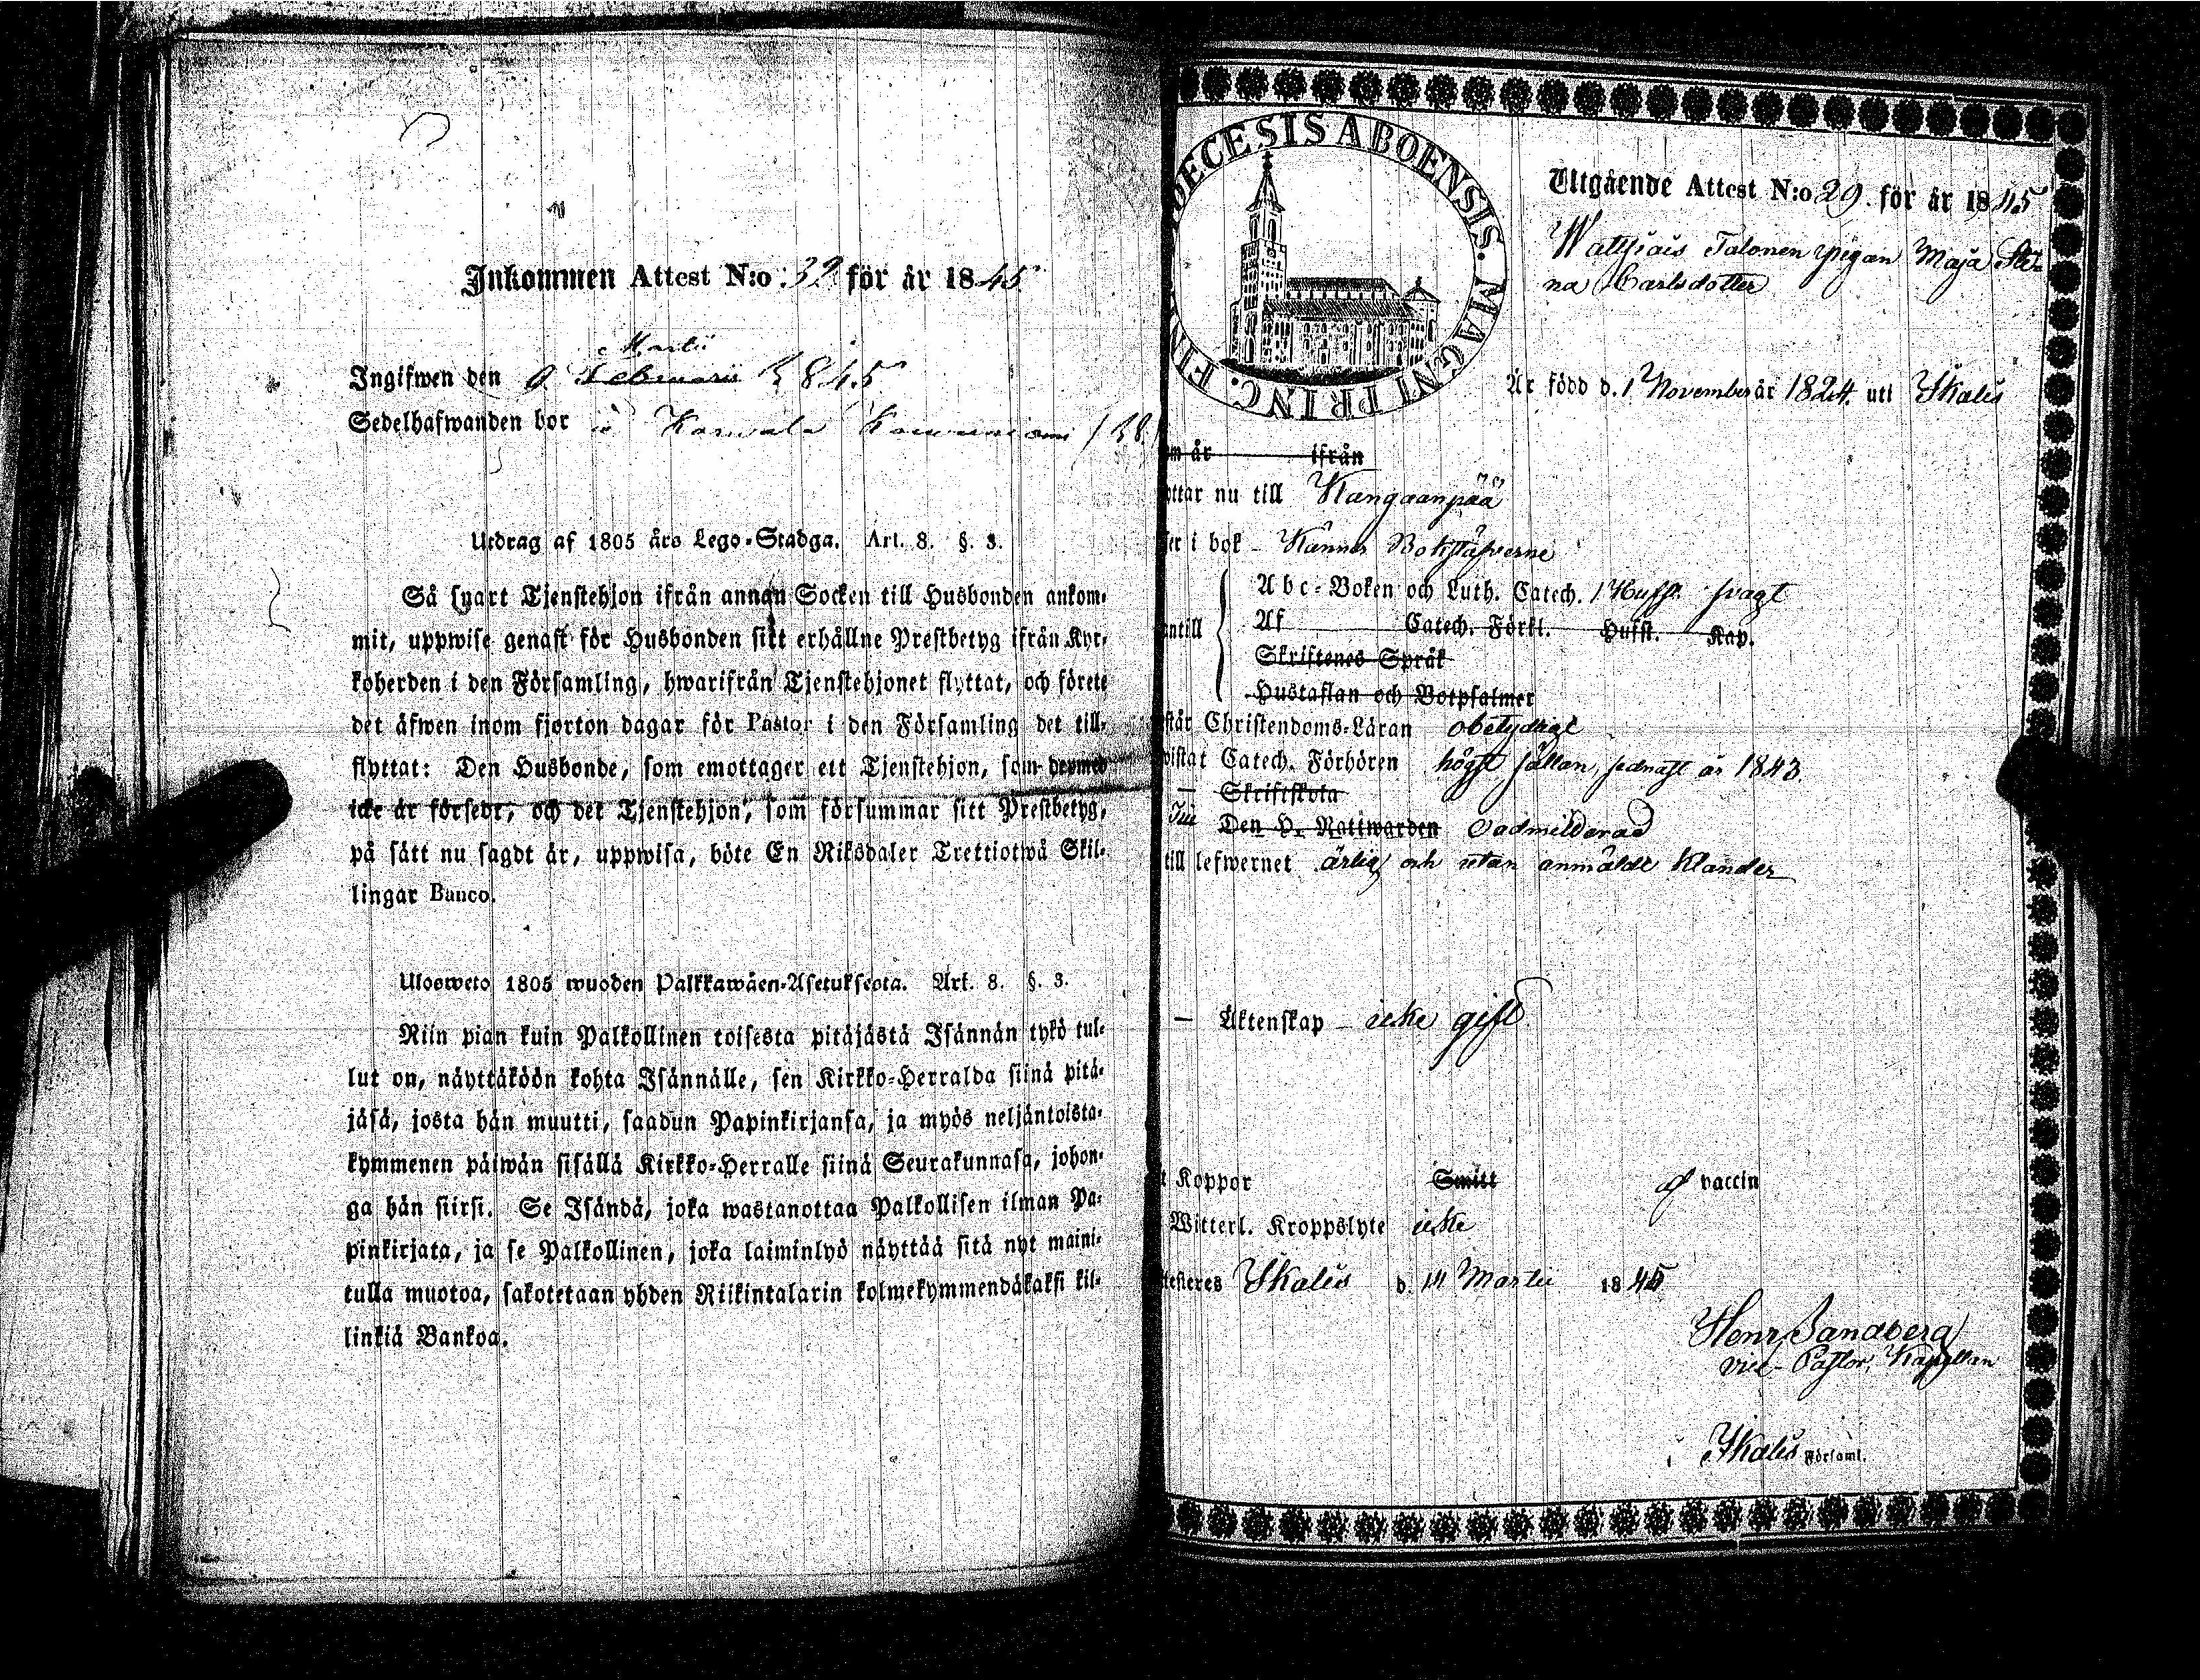 Inkommen Attest N:o 32 för år 1845
Martii
Ingifwen den 9 Februarii 1845
Sedelhafwanden bor i
Utdrag af 1805 års Lego-Stadga. Art. 8. §. 3.
Så snart Tjenstehjon ifrån annan Socken till Husbonden ankom-
mit, uppwise genast för Husbonden sitt erhållne Prestbetyg ifrån Kyr-
koherden i den Församling, hwarifrån Tjenstehjonet flyttat, och förete
det äfwen inom fjorton dagar för Pastor i den Församling det till-
flyttat: Den Husbonde, som emottager ett Tjenstehjon, som dermed
icke är försedt, och det Tjenstehjon, som försummar sitt Prestbetyg,
på sätt nu sagdt är, uppwisa, böte En Riksdaler Trettiotwå Skil-
lingar Banco.
Ulosweto 1805 wuoden Palkkawäen-Asetuksesta. Art. 8. §. 3.
Niin pian kuin Palkollinen toisesta pitäjästä Isännän tykö tul-
lut on, näyttäköön kohta Isännälle, sen Kirkko-Herralda siinä pitä-
jäsä, josta hän muutti, saadun Papinkirjansa, ja myös neljäntoista-
kymmenen päiwän sisällä Kirkko-Herralle siinä Seurakunnasa, johon-
ga hän siirsi. Se Isändä, joka wastanottaa Palkollisen ilman Pa-
pinkirjata, ja se Palkollinen, joka laiminlyö näyttää sitä nyt maini-
tulla muotoa, sakotetaan yhden Riikintalarin kolmekymmendäkaksi kil-
linkiä Bankoa.
DECESIS ABOENSIS. MAGNI PRINC. FIN
Utgående Attest N:o 29. för år 1845
Matthias Talonen pigan Maja Sti-
na Carlsdotter
Är född d. 1 November år 1824. uti Ikalis
m år ifrån
ttar nu till Kangaanpää
er i bok Känner Bokstäfverne
Abc-Boken och Luth. Catech. 1 Hufst. svagt
ntill Af Catech. Förkl. Hufst. Kap.
Skriftenes Språk
Hustaflan och Botpsalmer
står Christendoms-Läran obetydligt
wistat Catech. Förhören högst sällan, sednast år 1843
Skriftskola
Den H. Nattwarden oadmitterad
till lefwernet ärlig och utan anmäldt klander
Äktenskap icke gift
t Koppor Smitt af vaccin
Witterl. Kroppslyte icke
testeres Ikalis d. 14 Martii 1845
Henr. Sandberg
vice-Pastor, Kapellan
i Ikalis Församl.